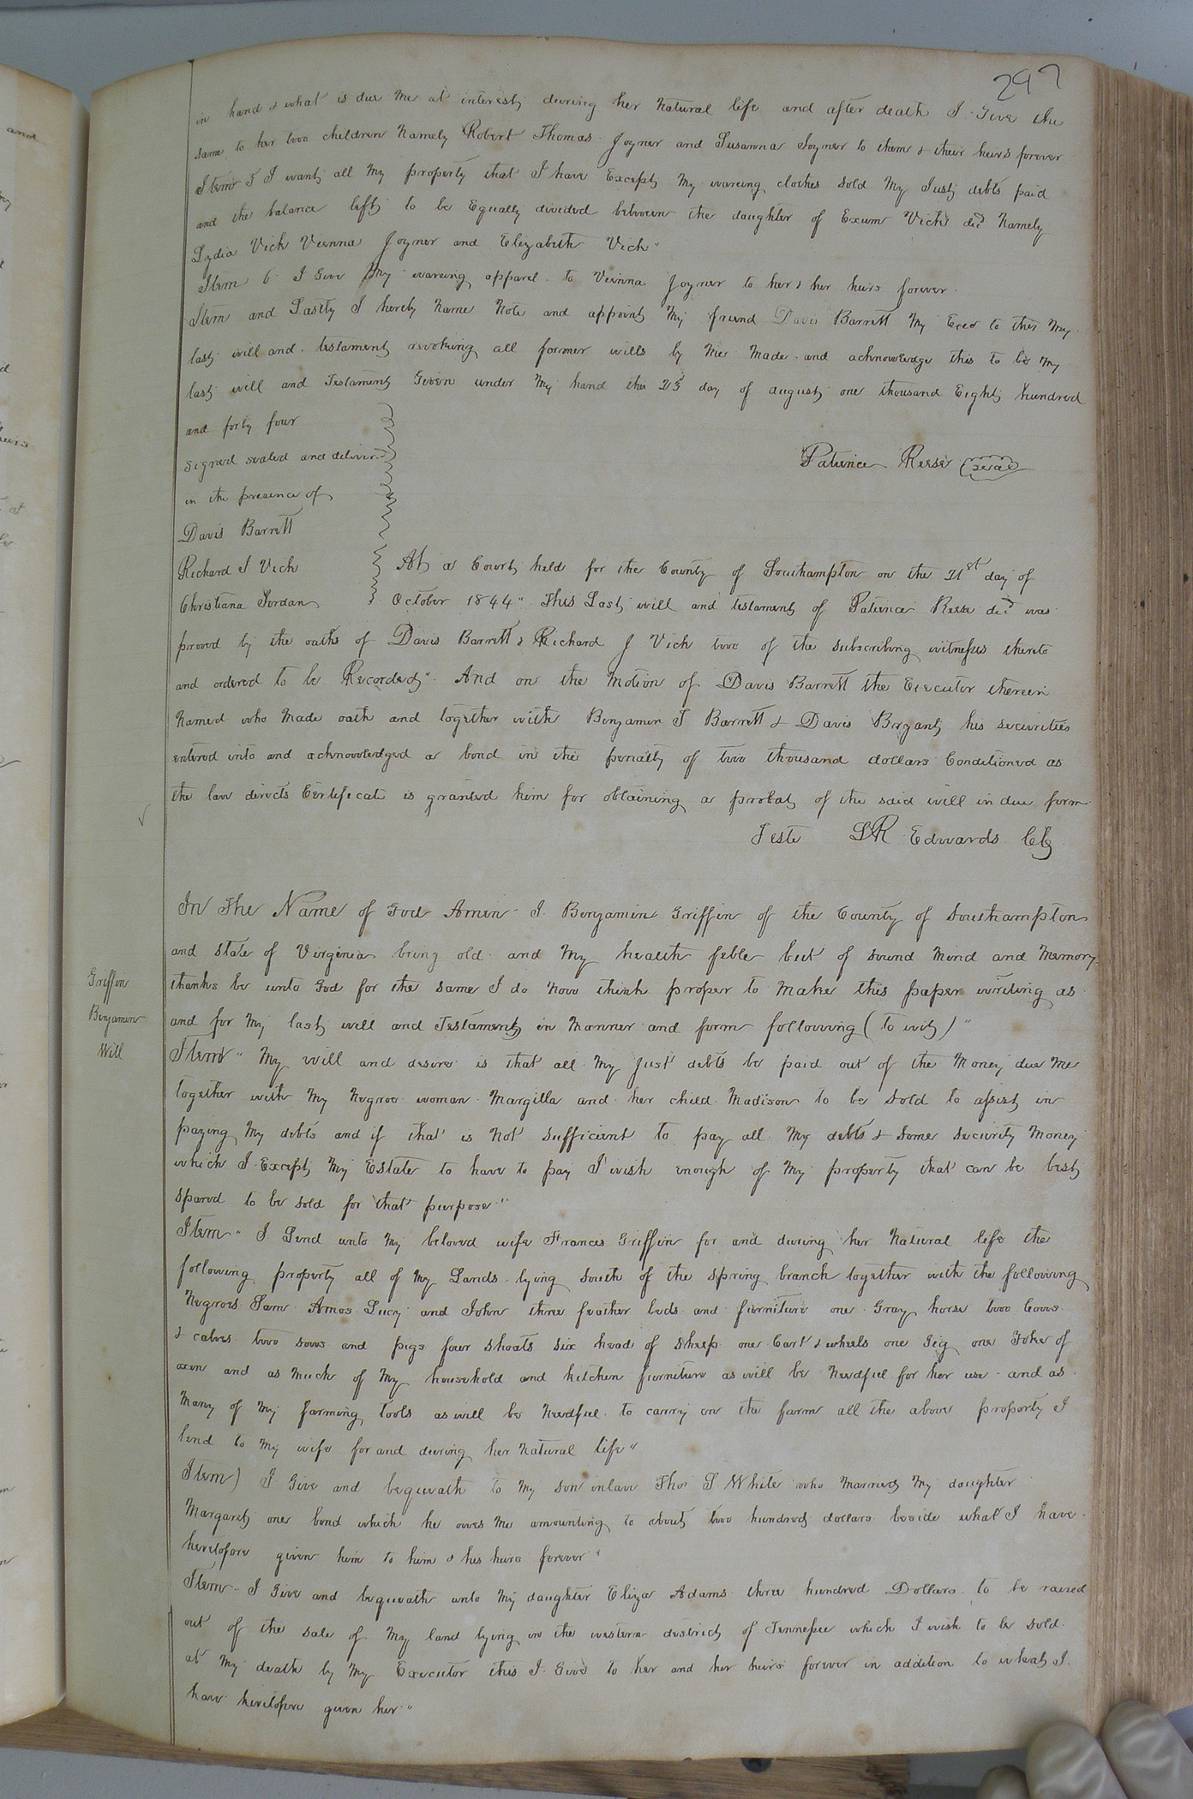 297
in hand & what is due me at interest during her Natural life and after death I Give the
same to her two children Namely Robert Thomas Joyner and Susanna Joyner to them & their heirs forever
Item 5 I want all My property that I have Except My wareing clothes Sold My Just debts paid
and the balance left to be Equally divided between the daughter of Exum Vick decd Namely
Lydia Vick Vienna Joyner and Elizabeth Vick"
Item 6 I Give My wareing apparel to Vienna Joyner to her & her heirs forever
Item and Lastly I hereby Name Note and appoint My friend Davis Barrett My Exeo to this My
last will and testament revoking all former wills by Me Made and acknowledge this to be My
last will and Testament Given under My hand the 23 day of august one thousand Eight hundred
and forty four
signed sealed and deliverd
Patience Reese (seal)
in the presence of
Davis Barrett
Richard J Vick
Christiana Jordan
At a Court held for the County of Southampton on the 21st day of
October 1844" This Last will and testament of Patience Reese decd was
proved by the oaths of Davis Barrett & Richard J Vick two of the subscribing witnesses thereto
and ordered to be Recorded" And on the Motion of Davis Barrett the Executor therein
Named who Made oath and together with Benjamin J Barrett & Davis Bryant his securities
entered into and acknowledged a bond in the penalty of two thousand dollars Conditioned as
the law directs Certificate is granted him for obtaining a probat of the said will in due form
Teste LR Edwards Clk
Griffin
Benjamin
Will
In The Name of God Amen I Benjamin Griffin of the County of Southampton
and State of Virginia being old and My health feble but of Sound Mind and Memory
thanks be unto God for the same I do Now think proper to Make this paper writing as
and for My last will and Testament in Manner and form following (to wit)"
Item" My will and desire is that all My Just debts be paid out of the Money due Me
together with My Negroe woman Margilla and her child Madison to be Sold to assist in
paying My debts and if that is Not Sufficient to pay all My debts & Some Security Money
which I Except My Estate to have to pay I wish enough of My property that can be best
spared to be sold for that purpose"
Item" I Lend unto My beloved wife Frances Griffin for and during her Natural life the
following property all of My Lands lying South of the Spring branch together with the following
Negroes Sam Amos Lucy and John three feather beds and furniture one Gray horse two Cows
& calves two sows and pigs four Shoats Six head of Sheep one Cart & wheels one Gig one Yoke of
oxen and as Much of My household and kitchen furniture as will be Needful for her use and as
Many of My farming tools as will be Needful to carry on the farm all the above property I
lend to My wife for and during her Natural life"
Item) I Give and bequeath to My Son inlaw Thos J White who Married My daughter
Margaret one bond which he owes Me amounting to about two hundred dollars beside what I have
heretofore given him to him & his heirs forever"
Item I Give and bequeath unto My daughter Eliza Adams three hundred Dollars to be raised
out of the sale of My land lying in the western district of Tennessee which I wish to be sold
at My death by My Executor this I Give to her and her heirs forever in addition to what I
have heretofore given her"